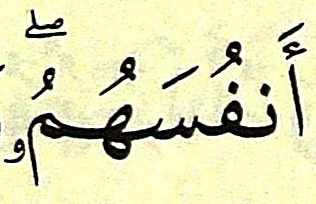 أَنفُسَهُمُۥۖ